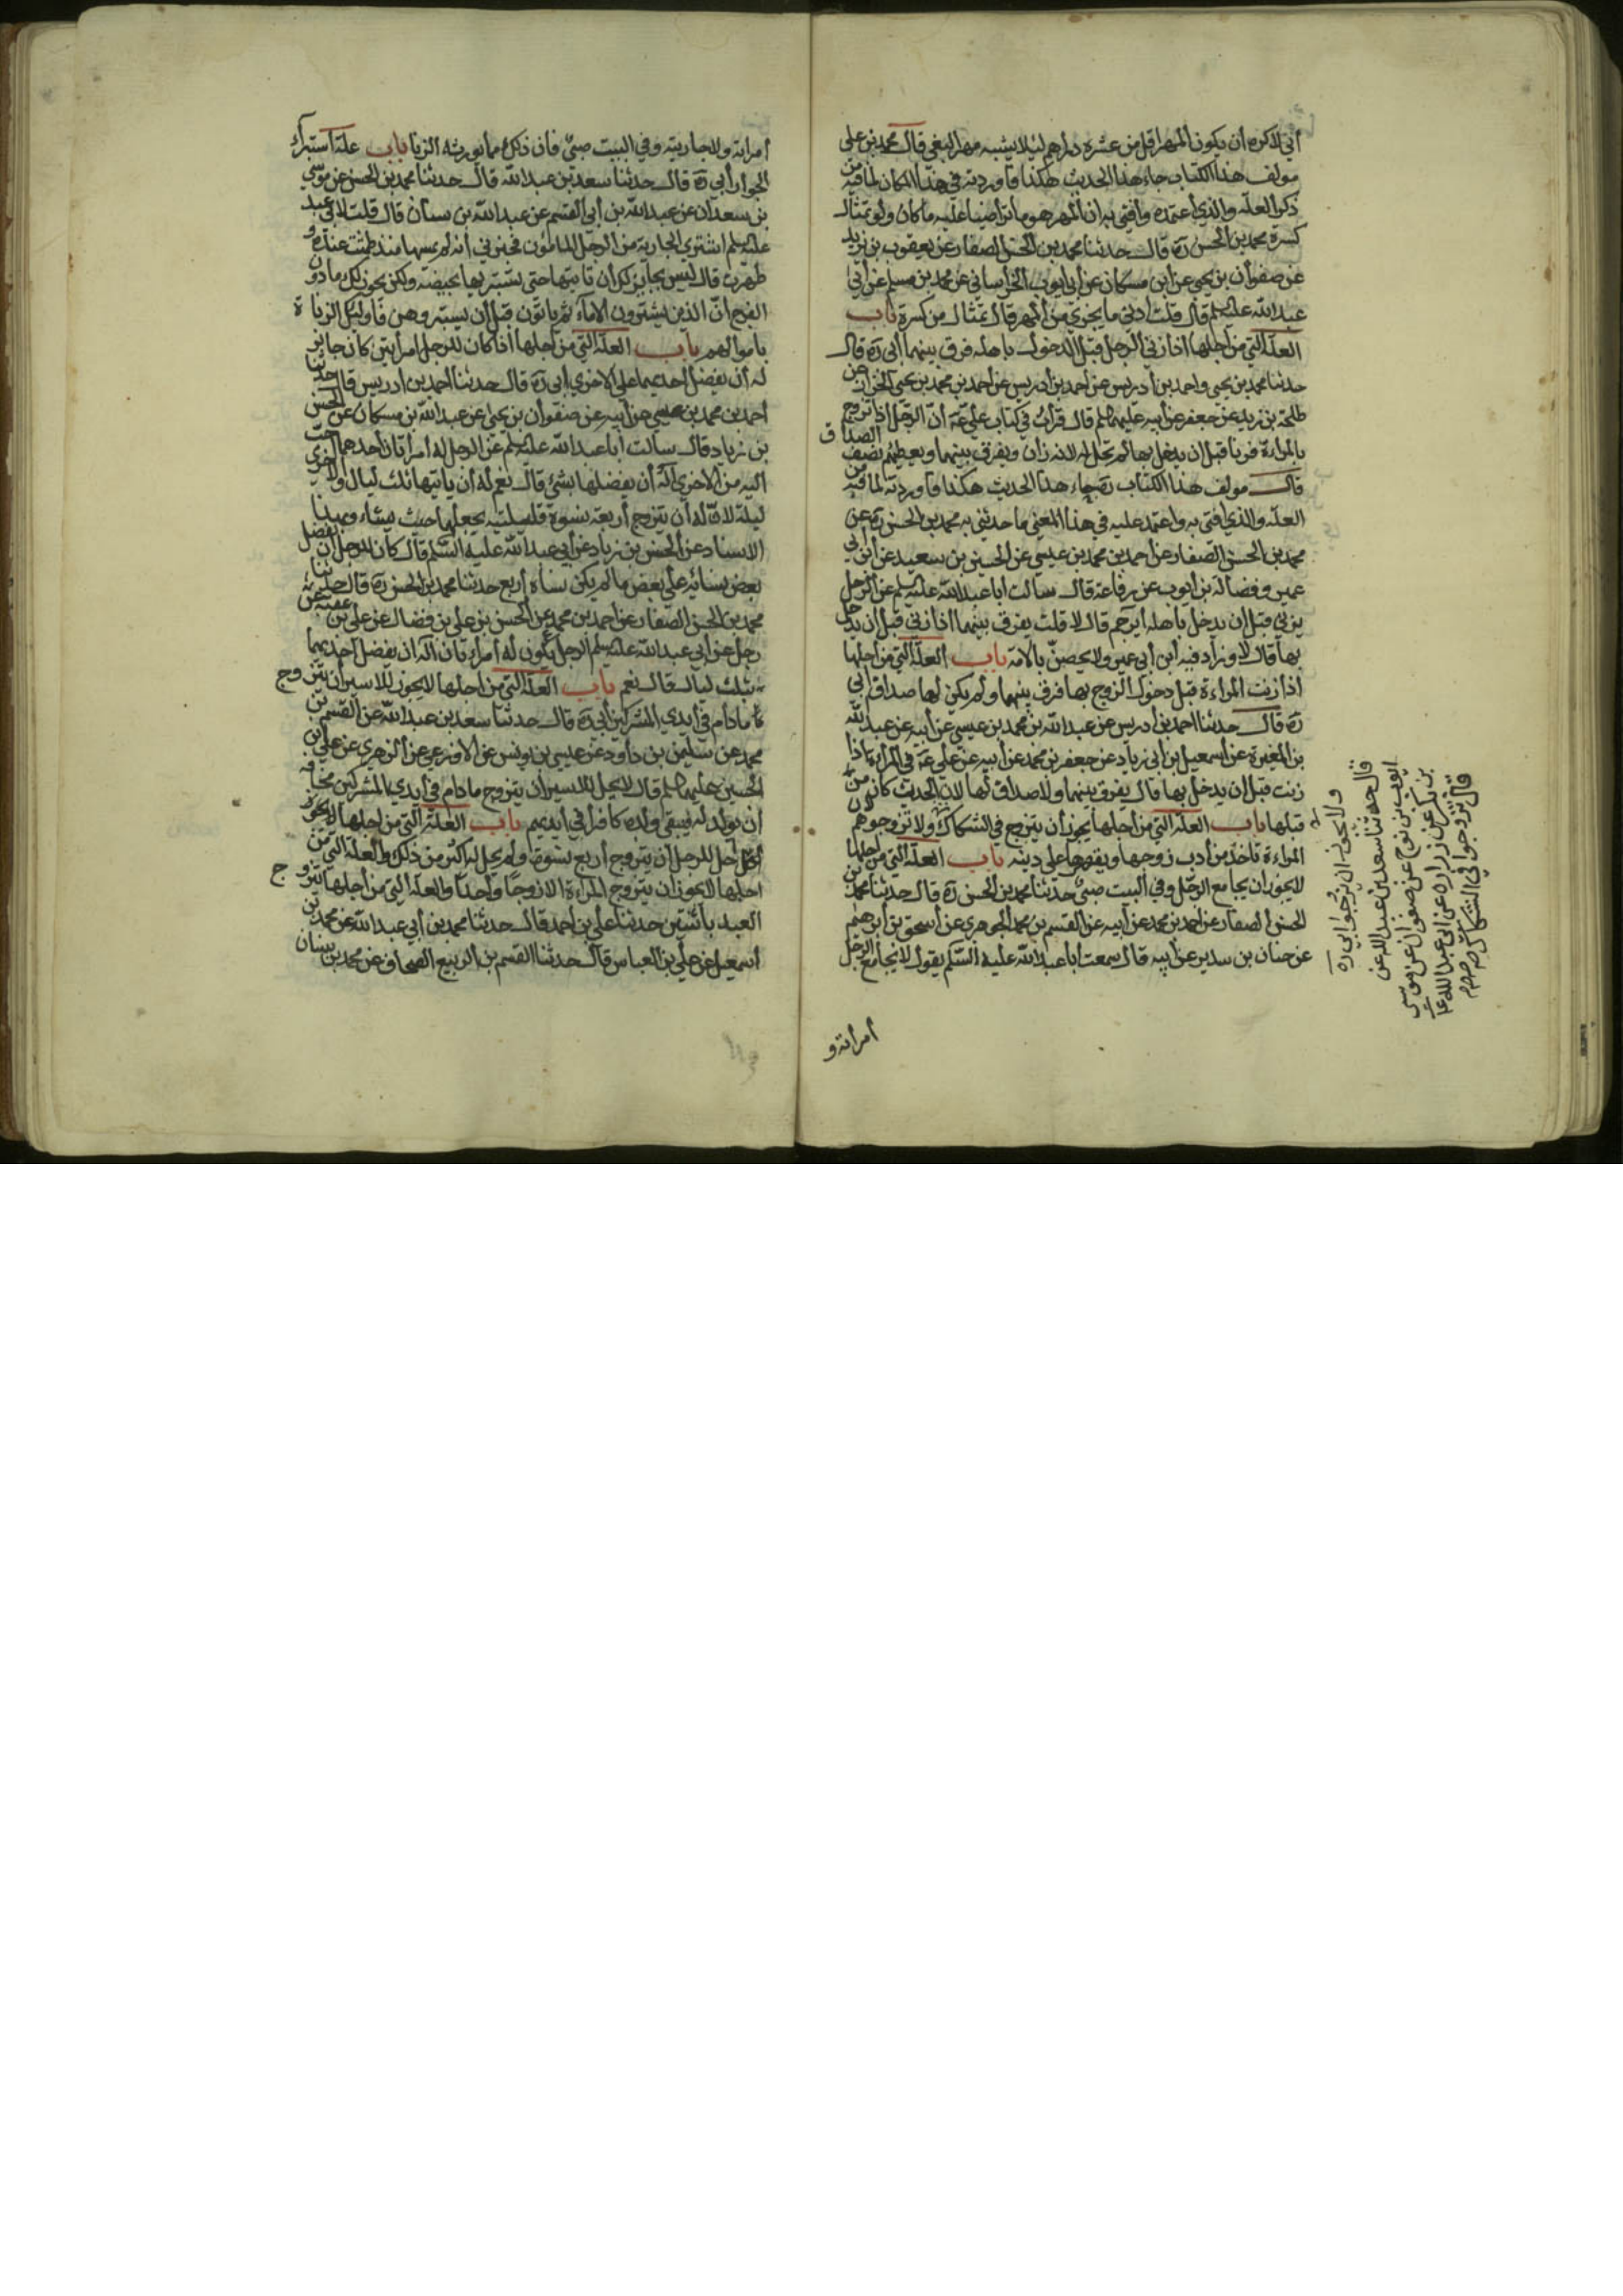 أني لاكره أن يكون المهر اقل من عشرة دراهم ليلا يشبه مهر البغي قال محمد بن علي
مولف هذا الكتاب جاء هذا الحديث هكذا فاوردته في هذا المكان لما فيه من
ذكر العلة والذي اعتمده وافتي به ان المهر هو ما تراضيا عليه ما كان ولو تمثال
كسرة محمد بن الحسن ره قال حدثنا محمد بن الحسن الصفار عن يعقوب بن يزيد
عن صفوان بن يحيى عن ابن مسكان عن أبي ايوب الخراساني عن محمد بن مسلم عن أبي
عبد الله عليه السلم قال قلت ادني ما يجزي من المهر قال تمثال من كسرة باب
العلة التي من اجلها اذا زني الرجل قبل الدخول باهله فرق بينهما ابي ره قال
حدثنا محمد بن يحيي واحمد بن أدريس عن احمد بن أدريس عن احمد بن محمد بن يحيى الخزاز عن
طلحة بن زيد عن جعفر عن أبيه عليهما السلم قال قرأت في كتاب علي عه أن الرجل اذا تزوج
بالمراءة فزنا قبل ان يدخل بها لم تحل له لانه زان ويفرق بينهما ويعطيهم نصف الصداق
قال مولف هذا الكتاب ره جاء هذا الحديث هكذا فاوردته لما فيه من
العلة والذي افتي به واعتمد عليه في هذا المعني ما حدثني به محمد بن الحسن ره عن
محمد بن الحسن الصفار عن احمد بن محمد بن عيسي عن الحسين بن سعيد عن ابن ابي
عمير وفضالة بن ايوب عن رفاعة قال سالت ابا عبد الله عليه السلم عن الرجل
يزني قبل ان يدخل باهله أيرجم قال لا قلت يفرق بينهما اذا زني قبل ان يدخل
بها قال لا وزاد فيه ابن أبي عمير ولا يحصن بالامة باب العلة التي من اجلها
اذا زنت المراءة قبل دخول الزوج بها فرق بينهما ولم يكن لها صداق ابي
ره قال حدثنا احمد بن أدريس عن عبد الله بن محمد بن عيسي عن أبيه عن عبد الله
بن المغيرة عن اسمعيل ابن أبي زياد عن جعفر بن محمد عن أبيه عن علي عه في المراءة اذا
زنت قبل ان يدخل بها قال يفرق بينهما ولا صداق لها لان الحدث كان من
قبلها باب العلة التي من اجلها يجوز أن يتزوج في الشكاك ولا تزوجوهم لان
المراءة تاخذ من أدب زوجها ويقهرها علي دينه باب العلة التي من اجلها
لا يجوز ان يجامع الرجل وفي البيت صبي حدثنا محمد بن الحسن ره قال حدثنا محمد بن
الحسن الصفار عن احمد بن محمد عن أبيه عن القسم بن محمد الجوهري عن أسحق بن أبرهيم
عن حنان بن سدير عن أبيه قال سمعت أبا عبد الله عليه السلم يقول لا يجامع الرجل
امراته و
ولا يجوز ان يزوجوا ابي ره
قال حدثنا سعد بن عبد الله عن
ايوب بن نوح عن صفوان عن موسى
بن بكر عن زراره عن ابي عبد الله ع
قال تزوجوا في الشكاك
أمراته ولا جاريته وفي البيت صبي فان ذلك مما يورثه الزنا باب علة استبراء
الجوار أبي ره قال حدثنا سعد بن عبد الله قال حدثنا محمد بن الحسن عن موسي
بن سعدان عن عبد الله بن أبي القسم عن عبد الله بن سنان قال قلت لابي عبد
عليه السلم اشتري الجارية من الرجل المامون فخبرني أنه لم يمسها منذ طمثت عنده و
طهرت قال ليس بجايز لك أن تاتيها حتى تستبريها بحيضة ولكن يجوز لك ما دون
الفرج ان الذين يشترون الاماء ثم ياتون قبل أن يستبروهن فاوليك الزناة
باموالهم باب العلة التي من اجلها اذا كان للرجل امرأتين كان جايز
له أن يفضل احديهما علي الاخري أبي ره قال حدثنا احمد بن ادريس قال حدثنا
احمد بن محمد بن عيسي عن أبيه عن صفوان بن يحيى عن عبد الله بن مسكان عن الحسن
بن زياد قال سالت ابا عبد الله عليه السلم عن الرجل له أمرأتان أحدهما احب
اليه من الاخري أله أن يفضلها بشيء قال نعم له أن ياتيها ثلث ليال والاخري
ليلة لان له أن يتزوج أربعة نسوة فليلتيه يجعلهما حيث يشاء وبهذا
الاسناد عن الحسن بن زياد عن أبي عبد الله عليه السلم قال كان للرجل أن يفضل
بعض نسائه علي بعض ما لم يكن نساءه أربع حدثنا محمد بن الحسن ره قال حدثنا
محمد بن الحسن الصفار عن احمد بن محمد عن الحسن بن علي بن فضال عن علي بن عقبة عن
رجل عن ابي عبد الله عليه السلم الرجل يكون له أمراءتان أله ان يفضل احديهما
بثلث ليال قال نعم باب العلة التي من اجلها لا يجوز للاسير أن يتزوج
ما دام في أيدي المشركين أبي ره قال حدثنا سعد بن عبد الله عن القسم بن
محمد عن سليمن بن داود عن عيسي بن يونس عن الاوزعي عن الزهري عن علي بن
الحسين عليهما السلم قال لا يحل للاسير أن يتزوج ما دام في أيدي المشركين مخافة
أن يولد له فيبقى ولده كافرا في أيديهم باب العلة التي من اجلها
احل للرجل أن يتزوج أربع نسوة ولم يحل له اكثر من ذلك والعلة التي من
اجلها لا يجوز أن يتزوج المراءة الا زوجا واحدا والعلة التي من أجلها يتزوج
العبد باثنتين حدثنا علي بن أحمد قال حدثنا محمد بن أبي عبد الله عن محمد بن
أسمعيل عن علي بن العباس قال حدثنا القسم بن الربيع الصحاف عن محمد بن سنان